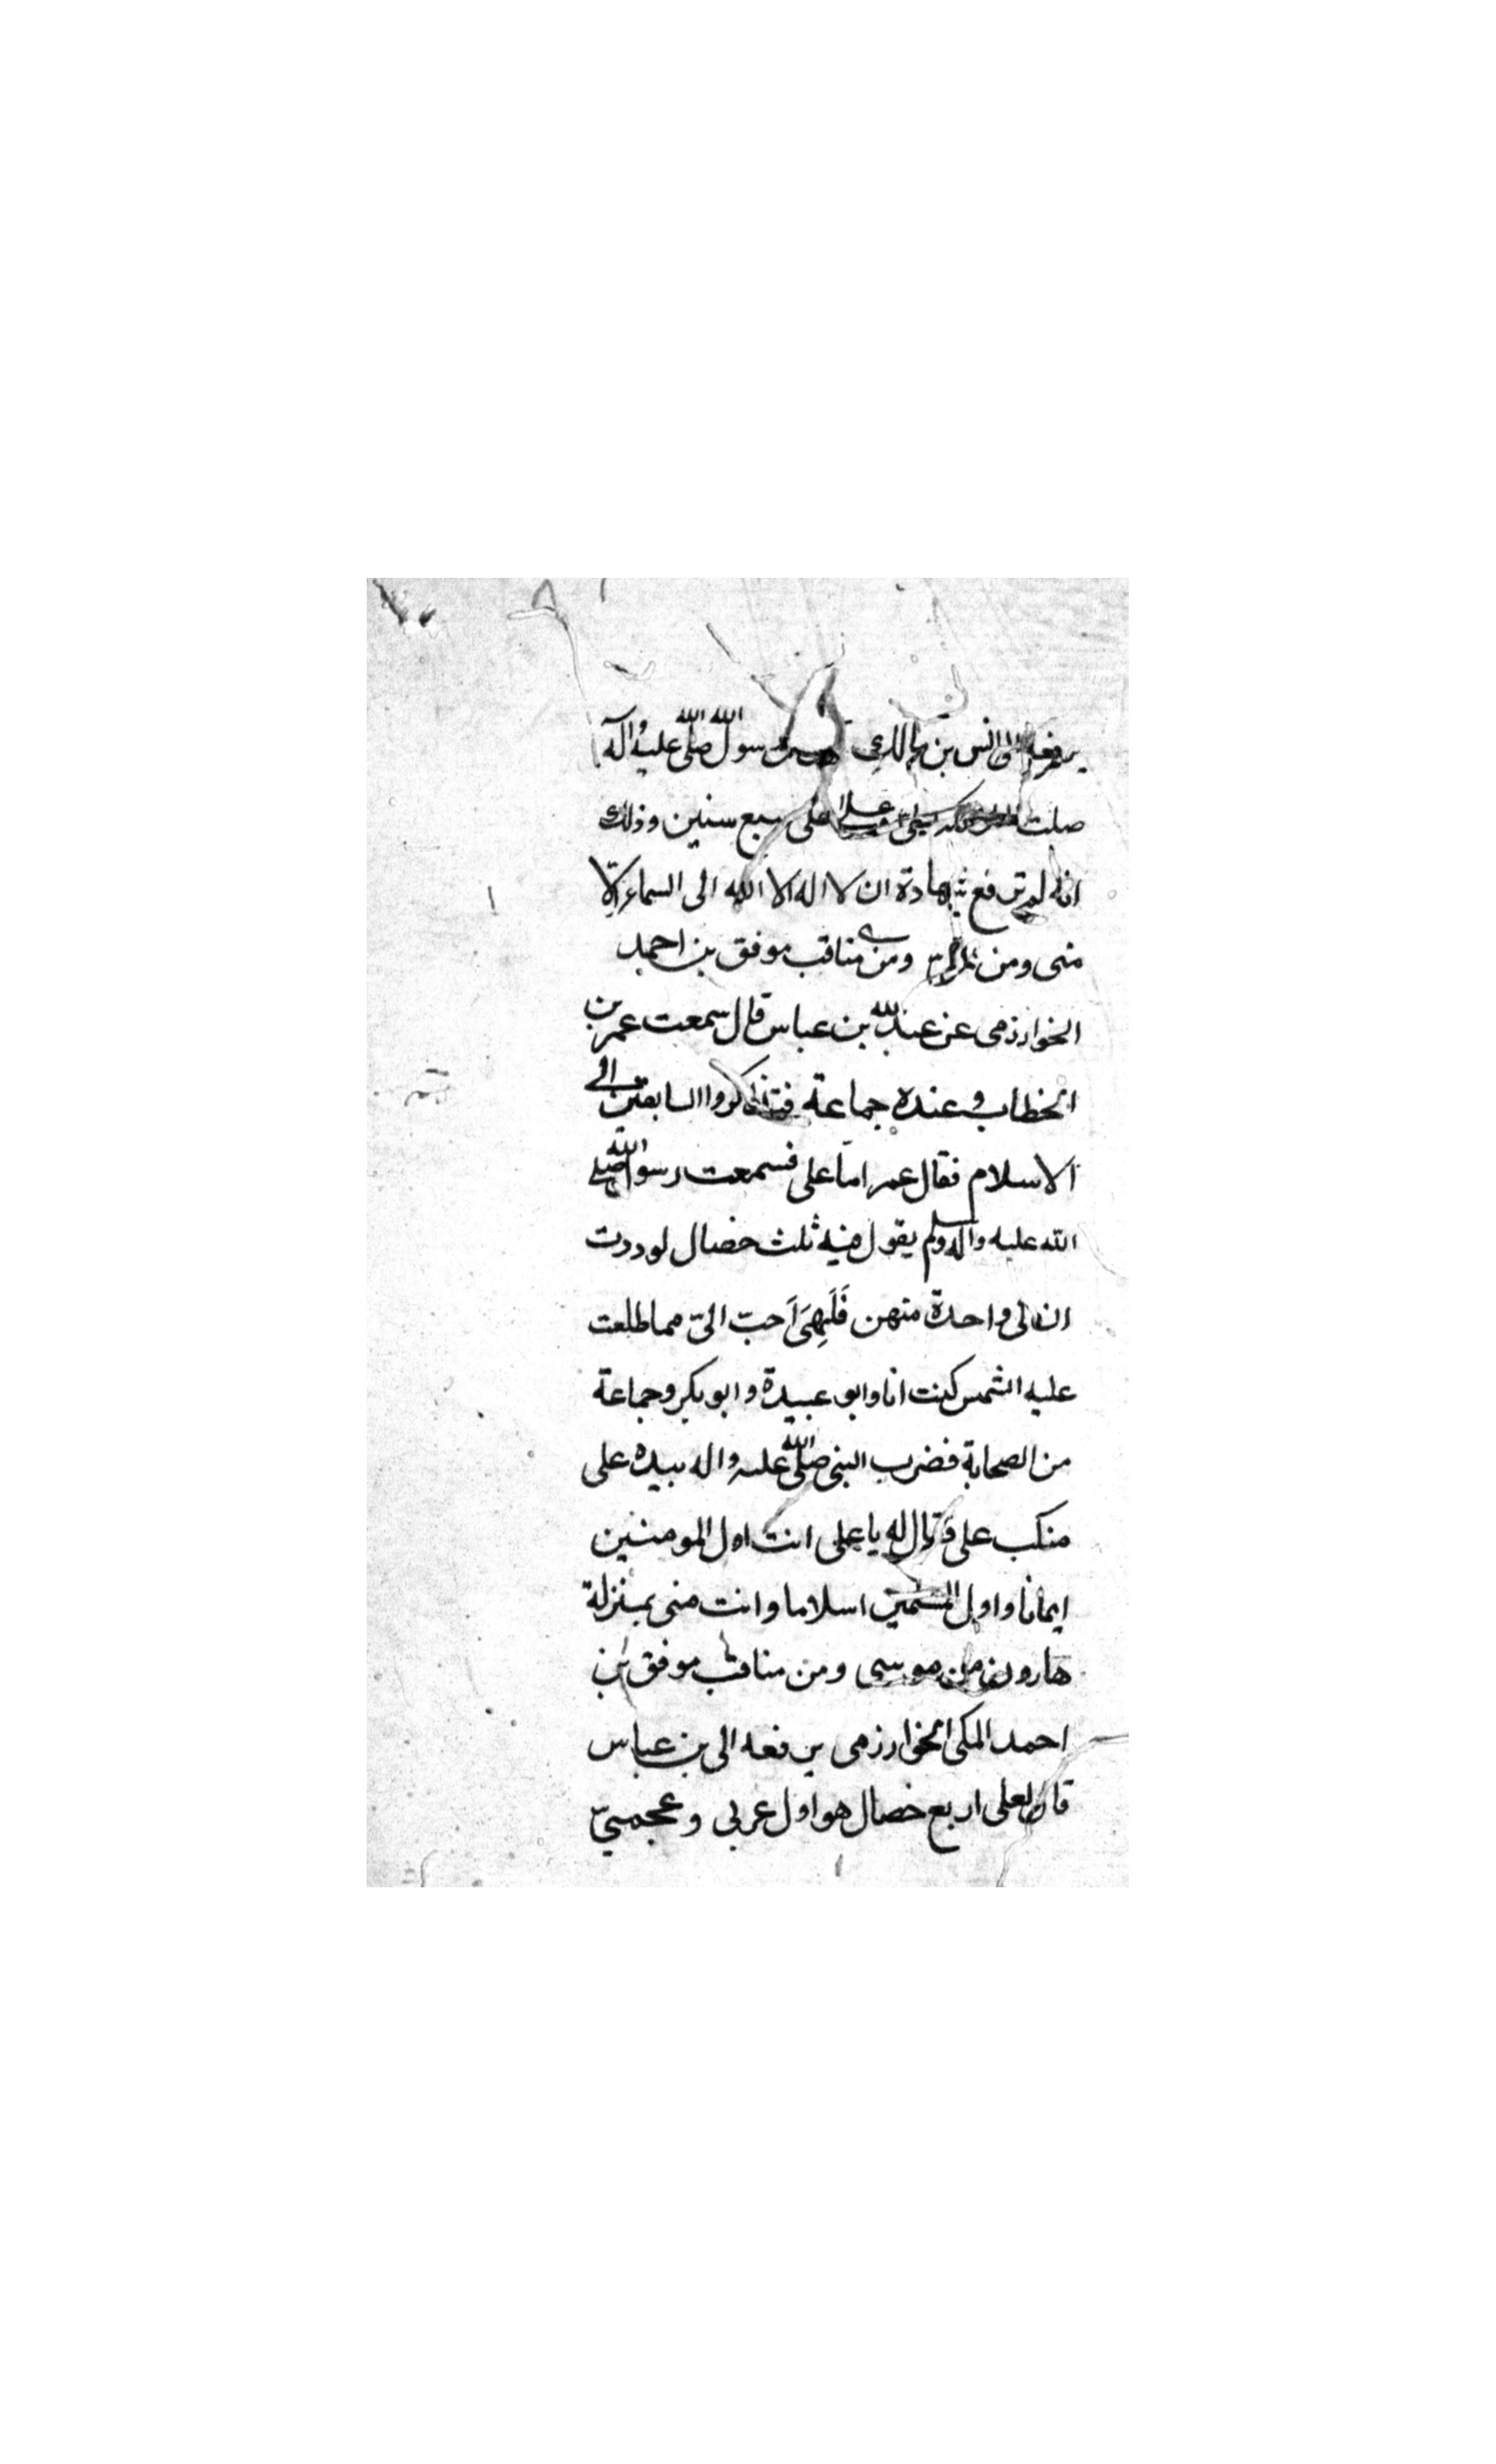 يرفعه الى انس بن مالك رسول الله صلى الله عليه واله
صلت على سبع سنين وذلك
انه لم ترفع شهادة ان لا اله الا الله الى السماء الا
منى ومن ومن مناقب موفق بن احمد
الخوارزمى عن عبد الله بن عباس قال سمعت عمر بن
الخطاب وعنده جماعة فتذاكروا السابقين الى
الاسلام فقال عمر اما على فسمعت رسول الله صلى
الله عليه واله وسلم يقول فيه ثلث خصال لوددت
ان لى واحدة منهن فَلَهِىَ اَحبّ الىّ مما طلعت
عليه الشمس كنت انا وابو عبيدة وابو بكر وجماعة
من الصحابة فضرب النبى صلى الله عليه واله بيده على
منكب على وقال له يا على انت اول المومنين
ايمانا واول المسلمين اسلاما وانت منى بمنزلة
هارون من موسى ومن مناقب موفق بن
احمد المكى الخوارزمى يرفعه الى بن عباس
قال لعلى اربع خصال هو اول عربى وعجمىّ